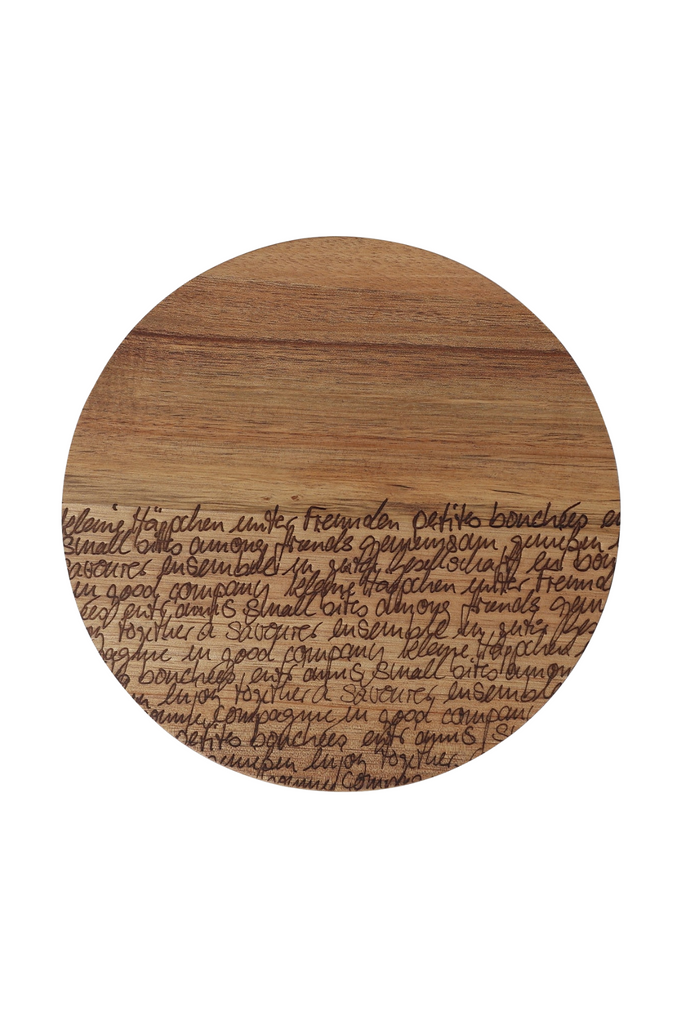 kleine Häppchen unter Freunden petites bouchées en
small bites among friends gemeinsam genießen
savourer ensemble in guter Gesellschaft en bon
in good company kleine Häppchen unter Freund
ées entr amis small bites among friends gem
y together à savourer ensemble in guter Ges
pagnie in good company kleine Häppchen
s bouchées entr amis small bites amon
n enjoy together à savourer ensemble
onne compagnie in good compan
petites bouchées entr amis s
genießen enjoy together
bonne compa